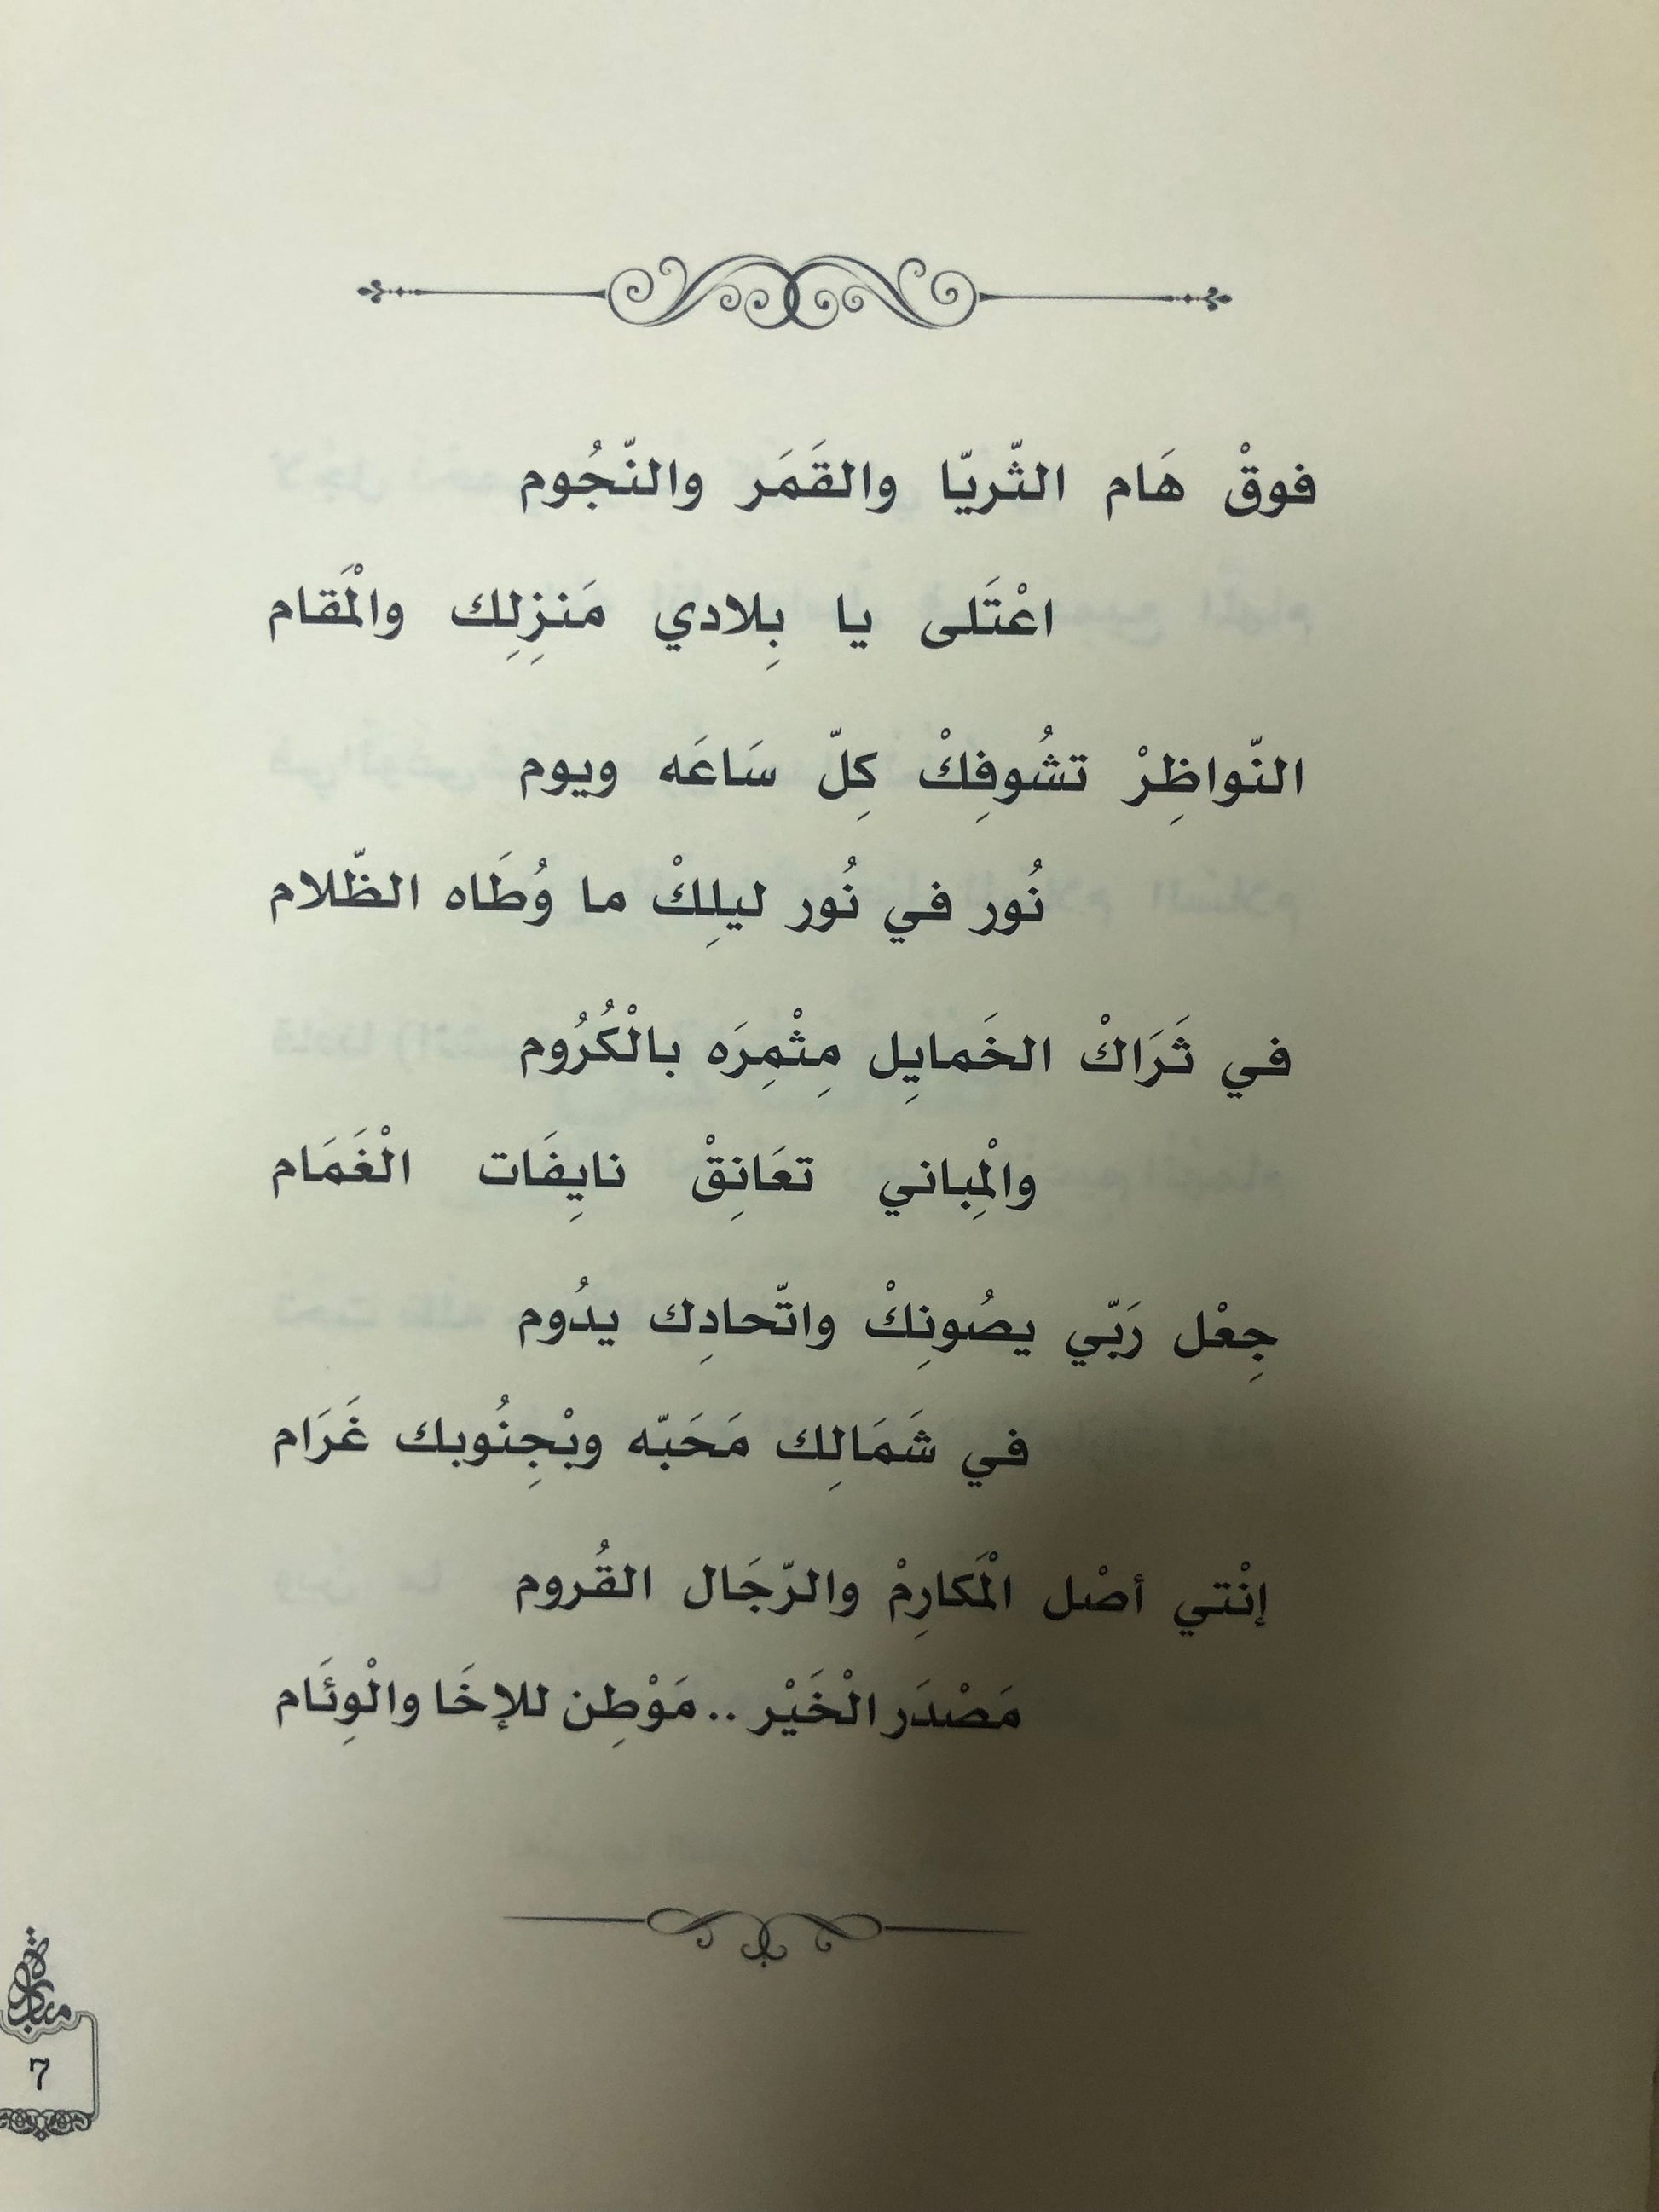 فوقْ هَام الثّريّا والقَمَر والنّجُوم
اعْتَلى يا بِلادي مَنزِلِك والْمَقام
النّواظِرْ تشُوفِكْ كِلّ سَاعَه ويوم
نُور في نُور ليلِكْ ما وُطَاه الظّلام
في ثَرَاكْ الخَمايِل مِثْمِرَه بالْكُرُوم
والْمِباني تعَانِقْ نايِفَات الْغَمَام
جِعْل رَبّي يصُونِكْ واتّحادِك يدُوم
في شَمَالِك مَحَبّه وبْجِنُوبك غَرَام
إنْتي أصْل الْمَكارِمْ والرّجَال القُروم
مَصْدَر الْخَيْر .. مَوْطِن للإخَا والْوِئَام
7